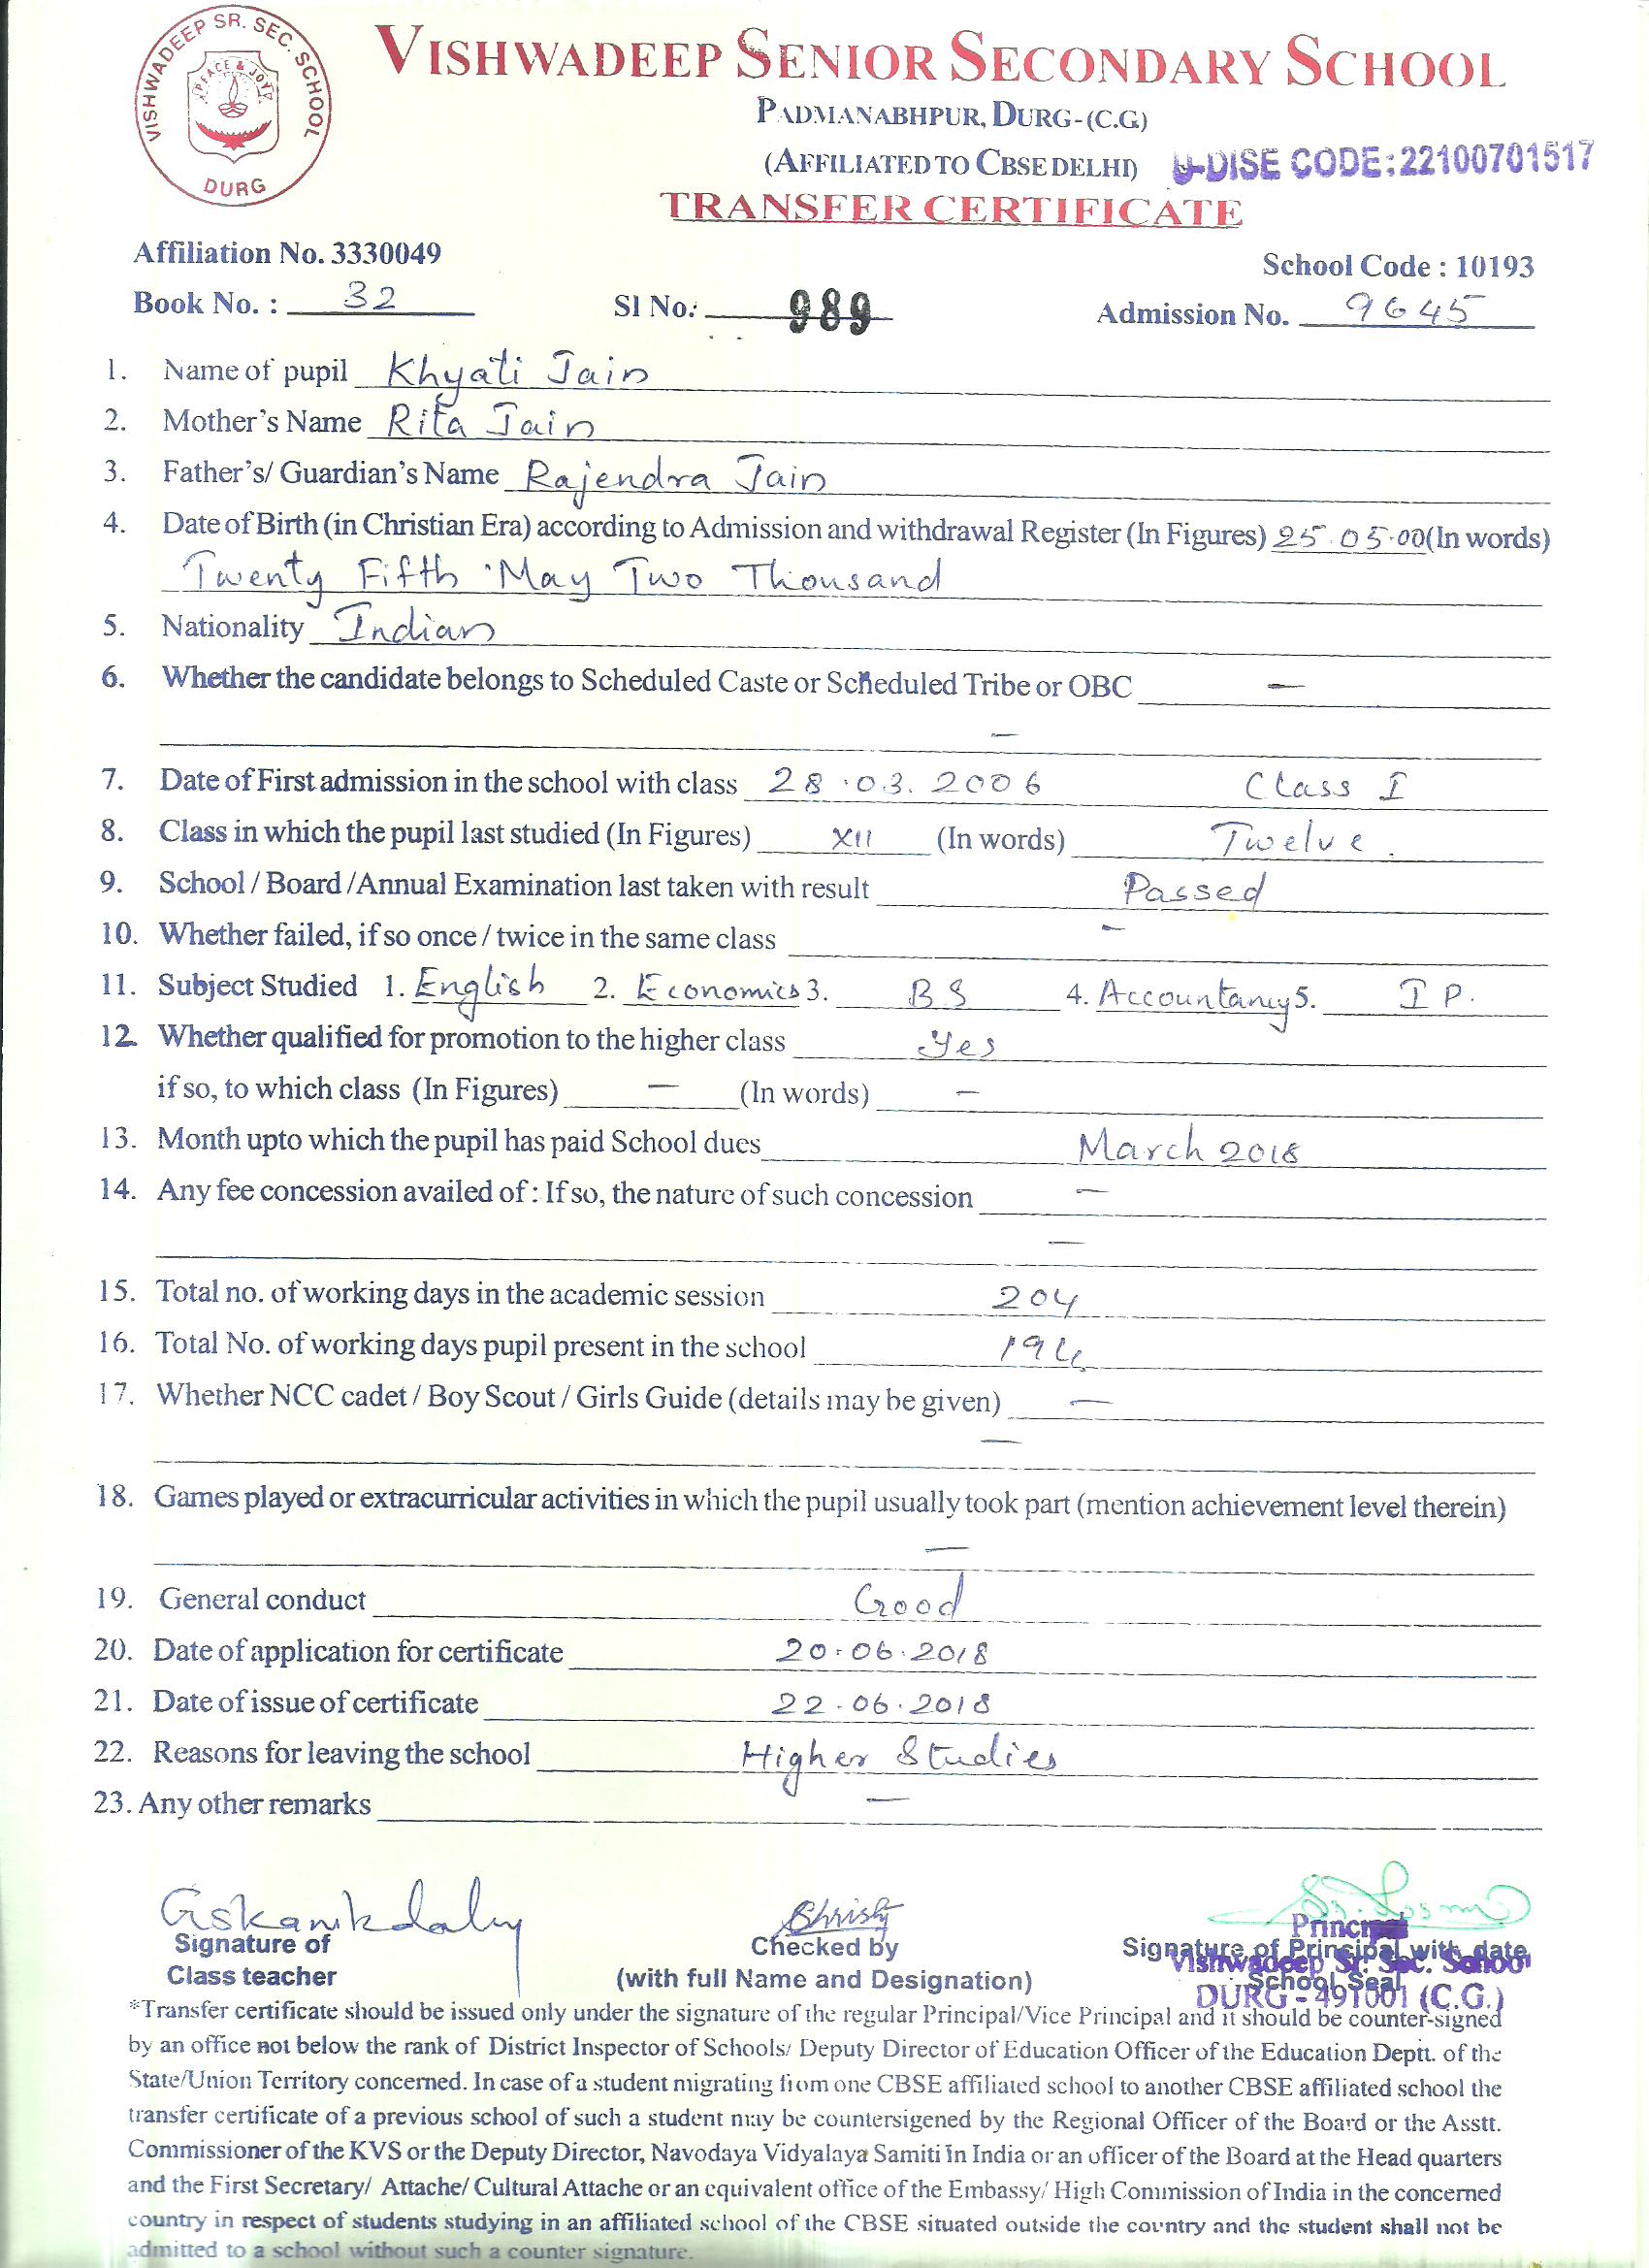 VISHWADEEP SR. SEC. SCHOOL
PEACE & JOY
DURG
VISHWADEEP SENIOR SECONDARY SCHOOL
PADMANABHPUR, DURG-(C.G)
(AFFILIATED TO CBSE DELHI) U-DISE CODE:22100701517
TRANSFER CERTIFICATE
Affiliation No. 3330049 School Code : 10193
Book No. : 32 Sl No.: 989 Admission No. 9645
1. Name of pupil Khyati Jain
2. Mother's Name Rita Jain
3. Father's/ Guardian's Name Rajendra Jain
4. Date of Birth (in Christian Era) according to Admission and withdrawal Register (In Figures) 25.05.00 (In words)
Twenty Fifth May Two Thousand
5. Nationality Indian
6. Whether the candidate belongs to Scheduled Caste or Scheduled Tribe or OBC —
—
7. Date of First admission in the school with class 28.03.2006 Class I
8. Class in which the pupil last studied (In Figures) XII (In words) Twelve.
9. School / Board /Annual Examination last taken with result Passed
10. Whether failed, if so once / twice in the same class —
11. Subject Studied 1. English 2. Economics 3. BS 4. Accountancy 5. IP.
12. Whether qualified for promotion to the higher class Yes
if so, to which class (In Figures) — (In words) —
13. Month upto which the pupil has paid School dues March 2018
14. Any fee concession availed of : If so, the nature of such concession —
—
15. Total no. of working days in the academic session 204
16. Total No. of working days pupil present in the school 194
17. Whether NCC cadet / Boy Scout / Girls Guide (details may be given) —
—
18. Games played or extracurricular activities in which the pupil usually took part (mention achievement level therein)
—
19. General conduct Good
20. Date of application for certificate 20.06.2018
21. Date of issue of certificate 22.06.2018
22. Reasons for leaving the school Higher Studies
23. Any other remarks —
Principal
Signature of Checked by Signature of Principal with date
Vishwadeep Sr. Sec. School
Class teacher (with full Name and Designation) School Seal
DURG - 491001 (C.G.)
*Transfer certificate should be issued only under the signature of the regular Principal/Vice Principal and it should be counter-signed
by an office not below the rank of District Inspector of Schools/ Deputy Director of Education Officer of the Education Deptt. of the
State/Union Territory concerned. In case of a student migrating from one CBSE affiliated school to another CBSE affiliated school the
transfer certificate of a previous school of such a student may be countersigened by the Regional Officer of the Board or the Asstt.
Commissioner of the KVS or the Deputy Director, Navodaya Vidyalaya Samiti in India or an officer of the Board at the Head quarters
and the First Secretary/ Attache/ Cultural Attache or an equivalent office of the Embassy/ High Commission of India in the concerned
country in respect of students studying in an affiliated school of the CBSE situated outside the country and the student shall not be
admitted to a school without such a counter signature.